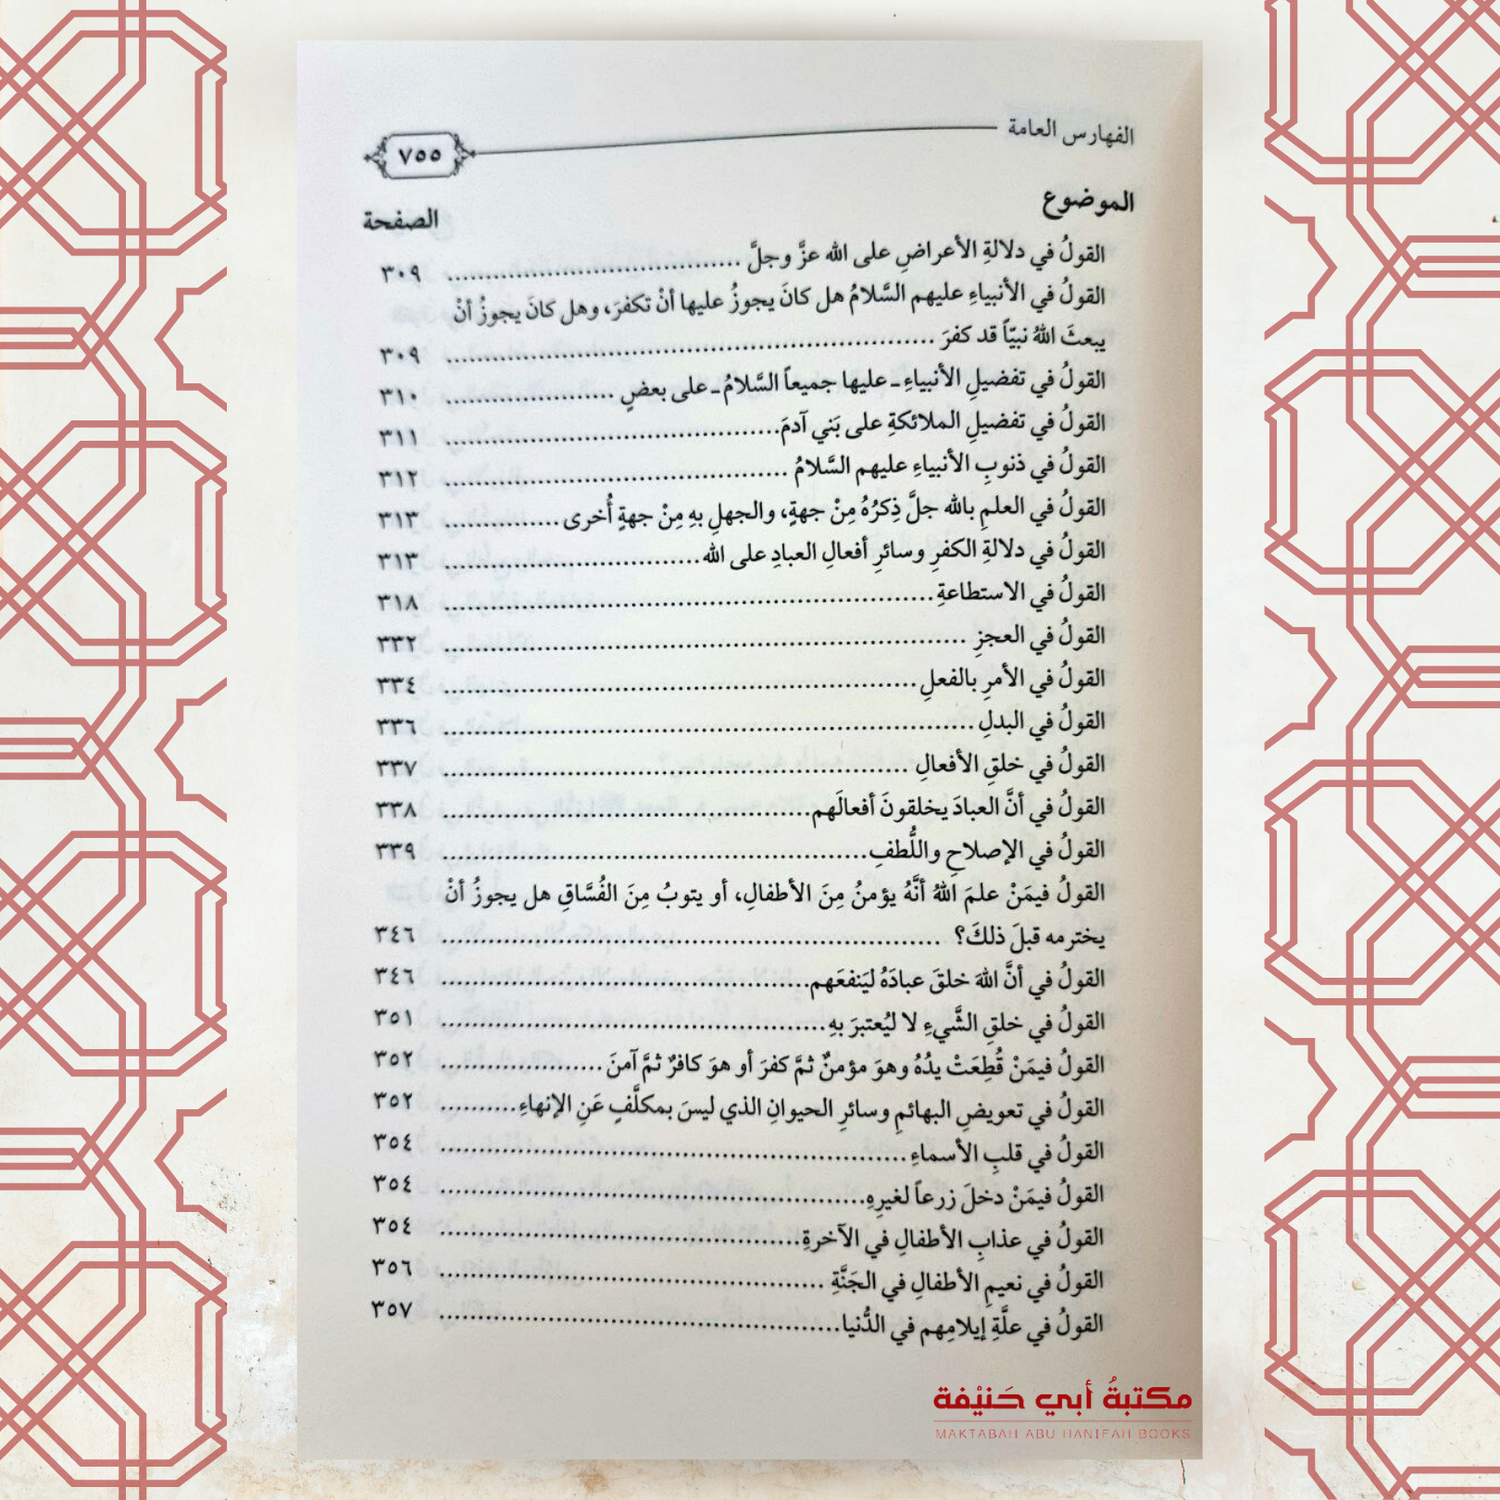 الفهارس العامة
٧٥٥
الموضوع
الصفحة
القولُ في دلالةِ الأعراضِ على الله عزَّ وجلَّ ........ ٣٠٩
القولُ في الأنبياءِ عليهم السَّلامُ هل كانَ يجوزُ عليها أنْ تكفرَ، وهل كانَ يجوزُ أنْ
يبعثَ اللهُ نبيّاً قد كفرَ ........ ٣٠٩
القولُ في تفضيلِ الأنبياءِ ـ عليها جميعاً السَّلامُ ـ على بعضٍ ........ ٣١٠
القولُ في تفضيلِ الملائكةِ على بَني آدمَ ........ ٣١١
القولُ في ذنوبِ الأنبياءِ عليهم السَّلامُ ........ ٣١٢
القولُ في العلمِ بالله جلَّ ذِكرُهُ مِنْ جهةٍ، والجهلِ بهِ مِنْ جهةٍ أُخرى ........ ٣١٣
القولُ في دلالةِ الكفرِ وسائرِ أفعالِ العبادِ على الله ........ ٣١٣
القولُ في الاستطاعةِ ........ ٣١٨
القولُ في العجزِ ........ ٣٣٢
القولُ في الأمرِ بالفعلِ ........ ٣٣٤
القولُ في البدلِ ........ ٣٣٦
القولُ في خلقِ الأفعالِ ........ ٣٣٧
القولُ في أنَّ العبادَ يخلقونَ أفعالَهم ........ ٣٣٨
القولُ في الإصلاحِ واللُّطفِ ........ ٣٣٩
القولُ فيمَنْ علمَ اللهُ أنَّهُ يؤمنُ مِنَ الأطفالِ، أو يتوبُ مِنَ الفُسَّاقِ هل يجوزُ أنْ
يخترمه قبلَ ذلكَ؟ ........ ٣٤٦
القولُ في أنَّ اللهَ خلقَ عبادَهُ ليَنفعَهم ........ ٣٤٦
القولُ في خلقِ الشَّيءِ لا ليُعتبرَ بهِ ........ ٣٥١
القولُ فيمَنْ قُطِعَتْ يدُهُ وهوَ مؤمنٌ ثمَّ كفرَ أو هوَ كافرٌ ثمَّ آمنَ ........ ٣٥٢
القولُ في تعويضِ البهائمِ وسائرِ الحيوانِ الذي ليسَ بمكلَّفٍ عَنِ الإنهاءِ ........ ٣٥٢
القولُ في قلبِ الأسماءِ ........ ٣٥٤
القولُ فيمَنْ دخلَ زرعاً لغيرِهِ ........ ٣٥٤
القولُ في عذابِ الأطفالِ في الآخرةِ ........ ٣٥٤
القولُ في نعيمِ الأطفالِ في الجَنَّةِ ........ ٣٥٦
القولُ في علَّةِ إيلامِهم في الدُّنيا ........ ٣٥٧
مكتبةُ أبي حَنيْفة
MAKTABAH ABU HANIFAH BOOKS